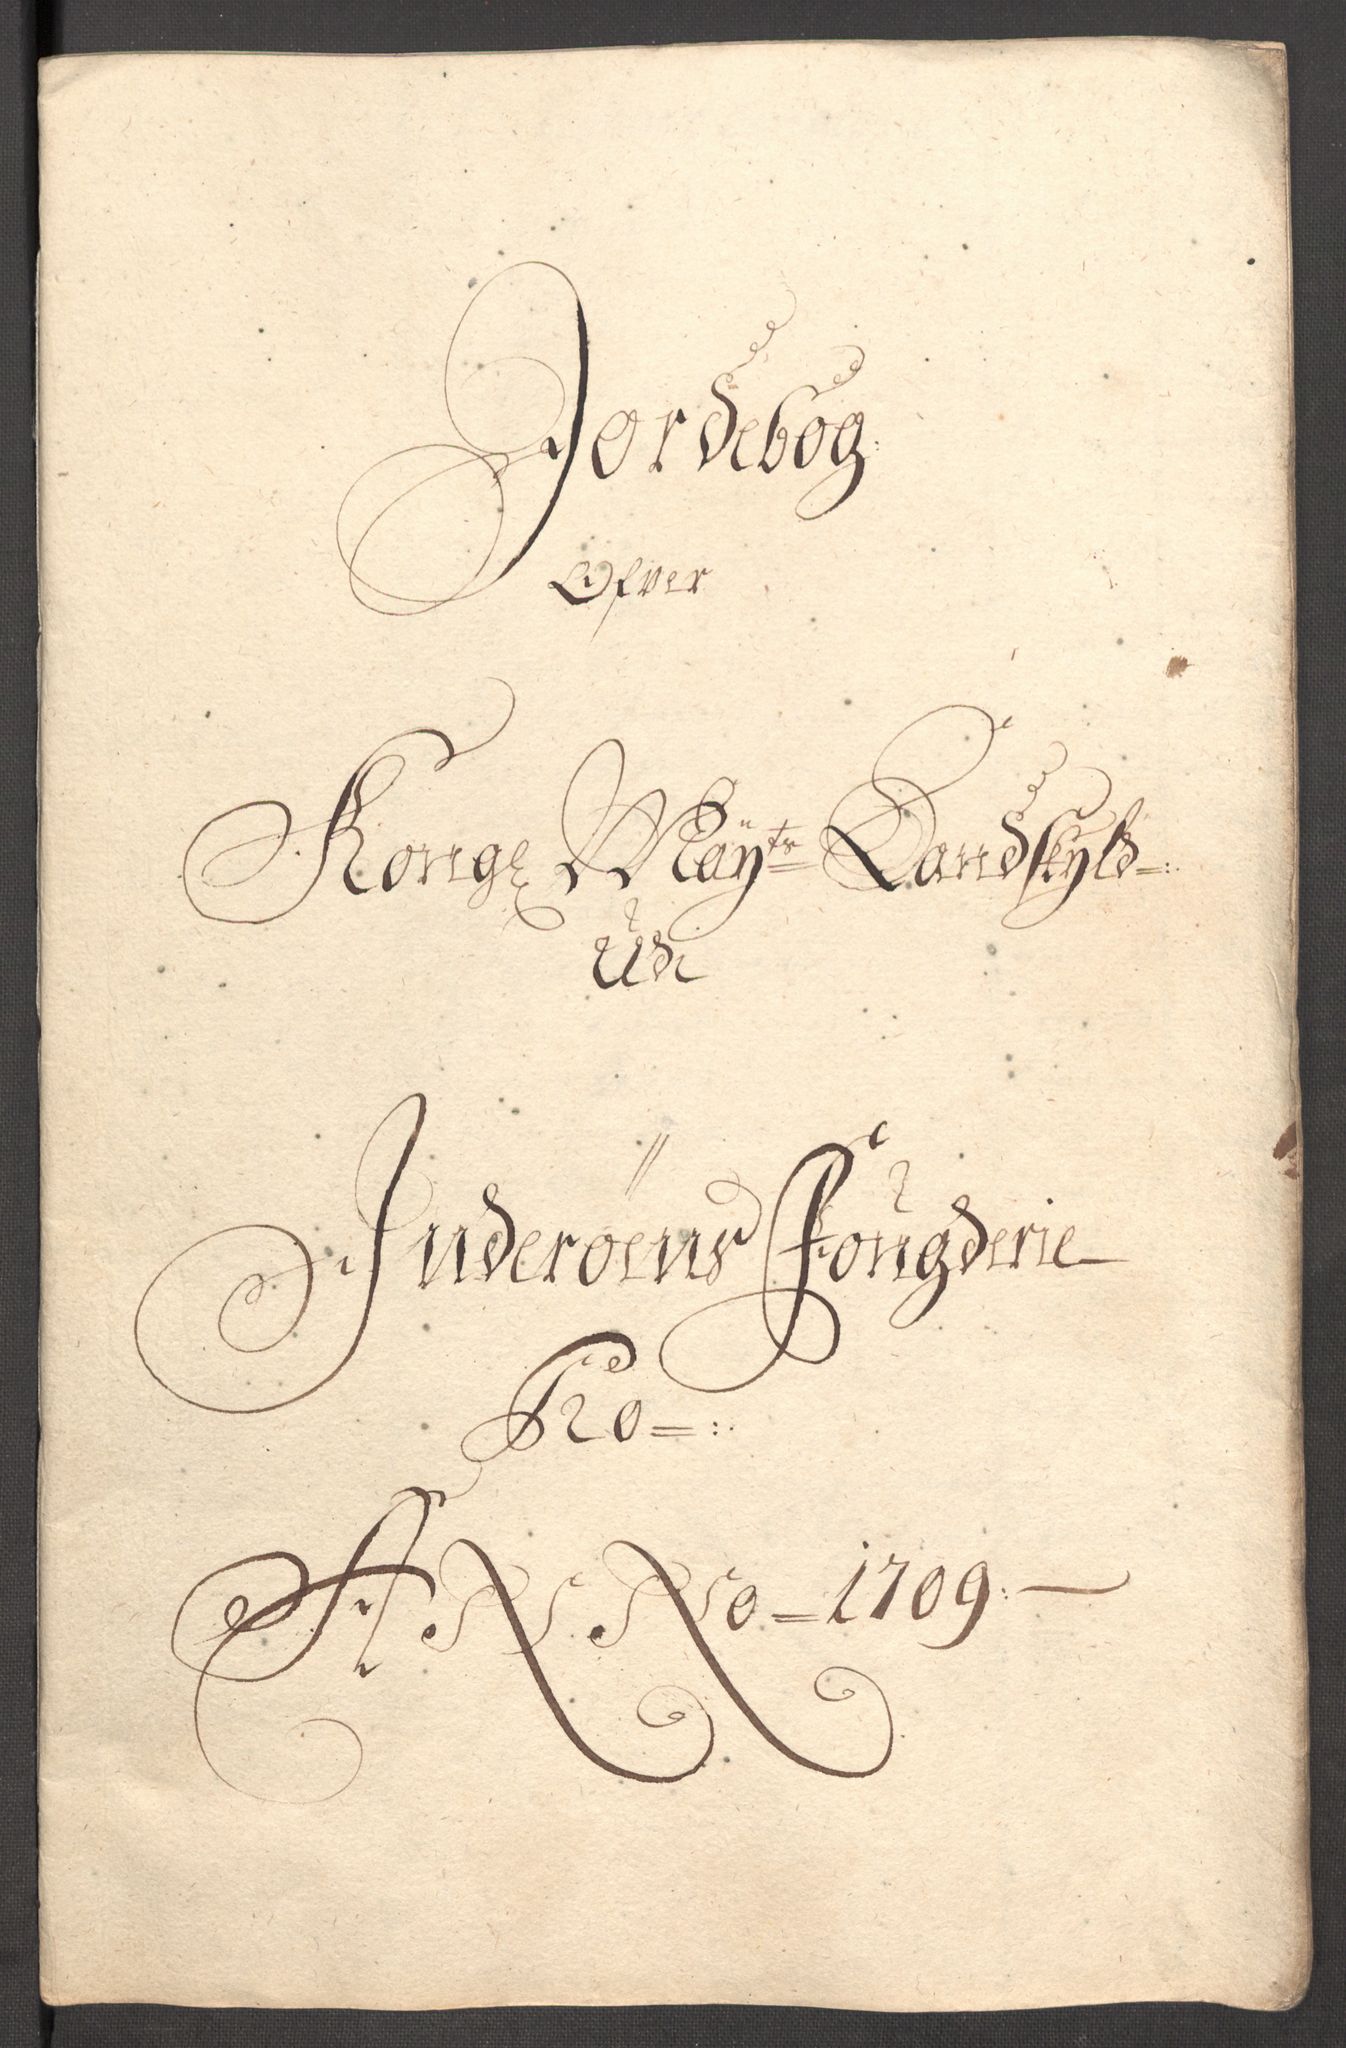 Jordebog
Ofver
Kongl Mäÿts Landskyld
Udi
Inderöens Fougderie
Pro
ANNo 1709